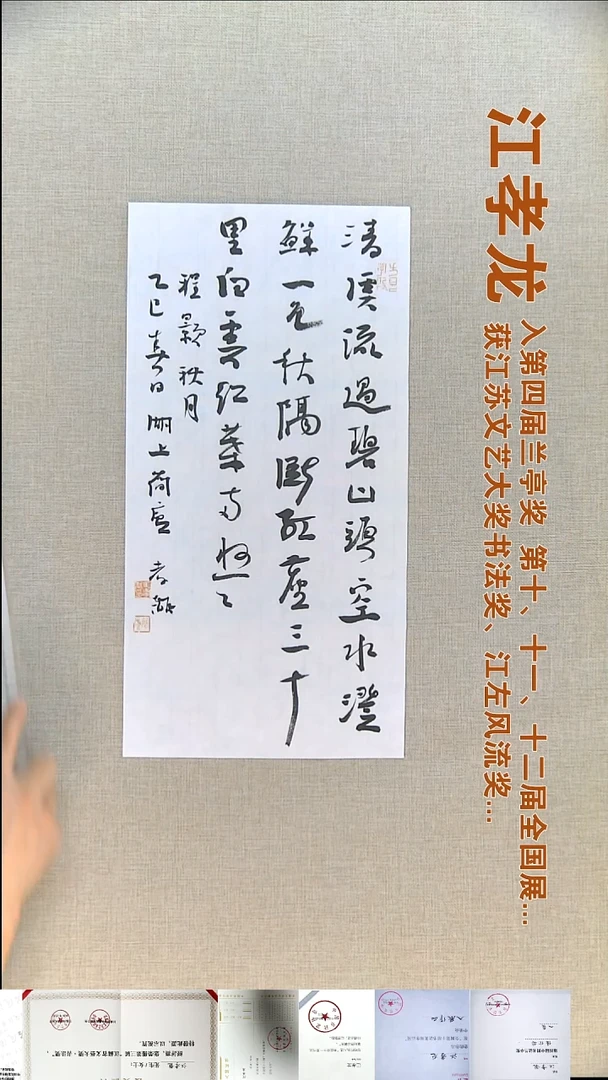 江孝龙
入第四届兰亭奖 第十、十一、十二届全国展...
获江苏文艺大奖书法奖、江左风流奖...
清溪流过碧山头空水澄
鲜一色秋隔断红尘三十
里白云红叶两悠悠
程颢秋月
乙巳春日湖上简庐 孝龙